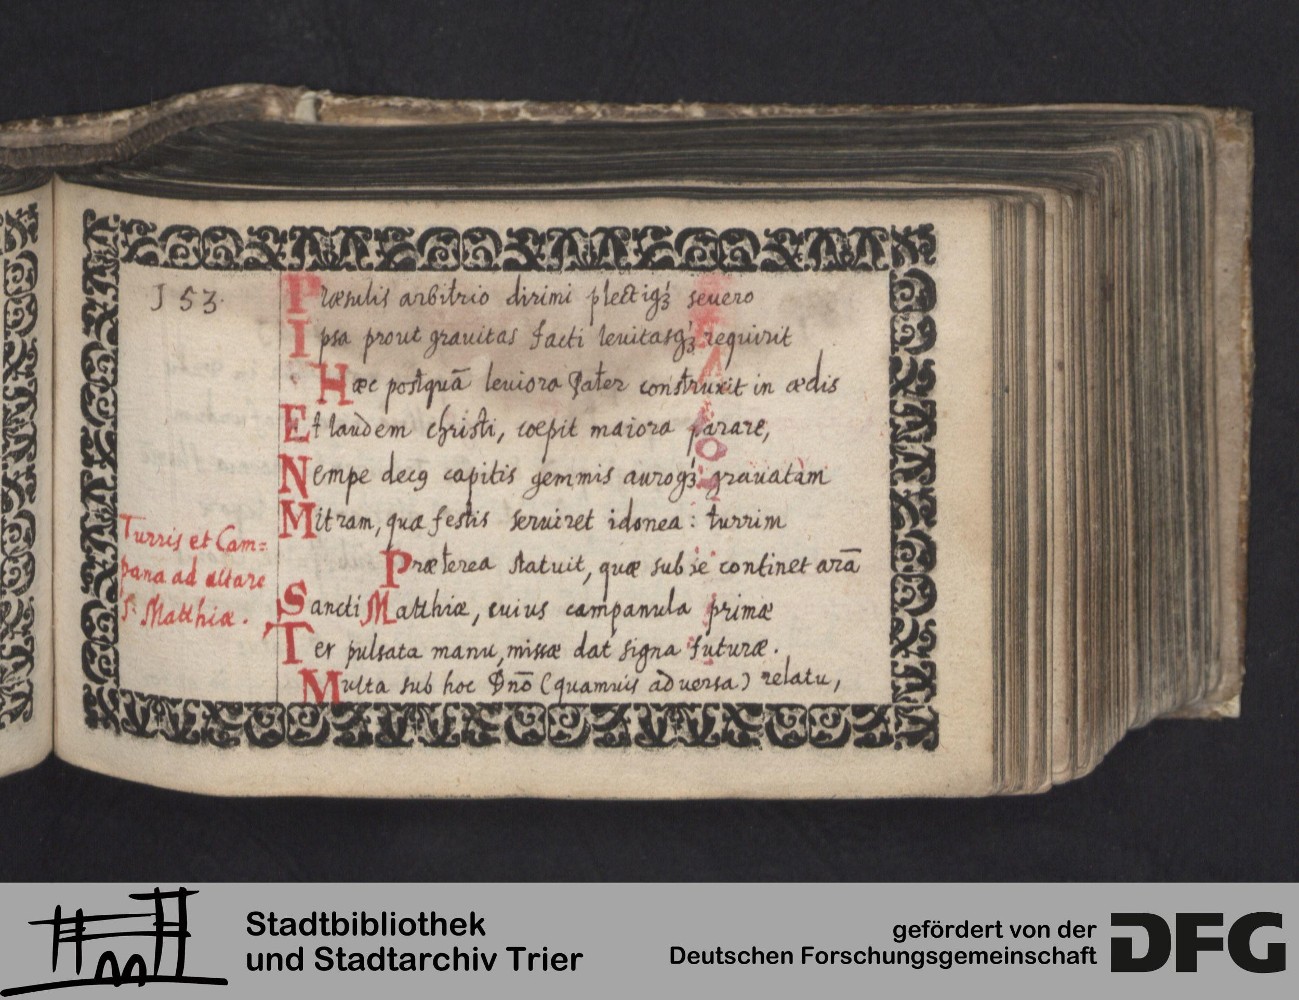 J 53.
Præsulis arbitrio dirimi plectiqꝫ seuero
Ipsa prout grauitas facti leuitasqꝫ requirit
Hæc postquā leuiora Pater construxit in ædis
Et laudem christi, coepit maiora parare,
Nempe decꝰ capitis gemmis auroqꝫ grauatam
Mitram, quæ festis seruiret idonea: turrim
Præterea statuit, quæ sub se continet arā
Sancti Matthiæ, cuius campanula primæ
Ter pulsata manu, missæ dat signa futuræ.
Multa sub hoc Dn̄o (quamuis aduersa) relatu,
Turris et Cam=
pana ad altare
S. Matthiæ.
Stadtbibliothek
und Stadtarchiv Trier
gefördert von der
Deutschen Forschungsgemeinschaft
DFG